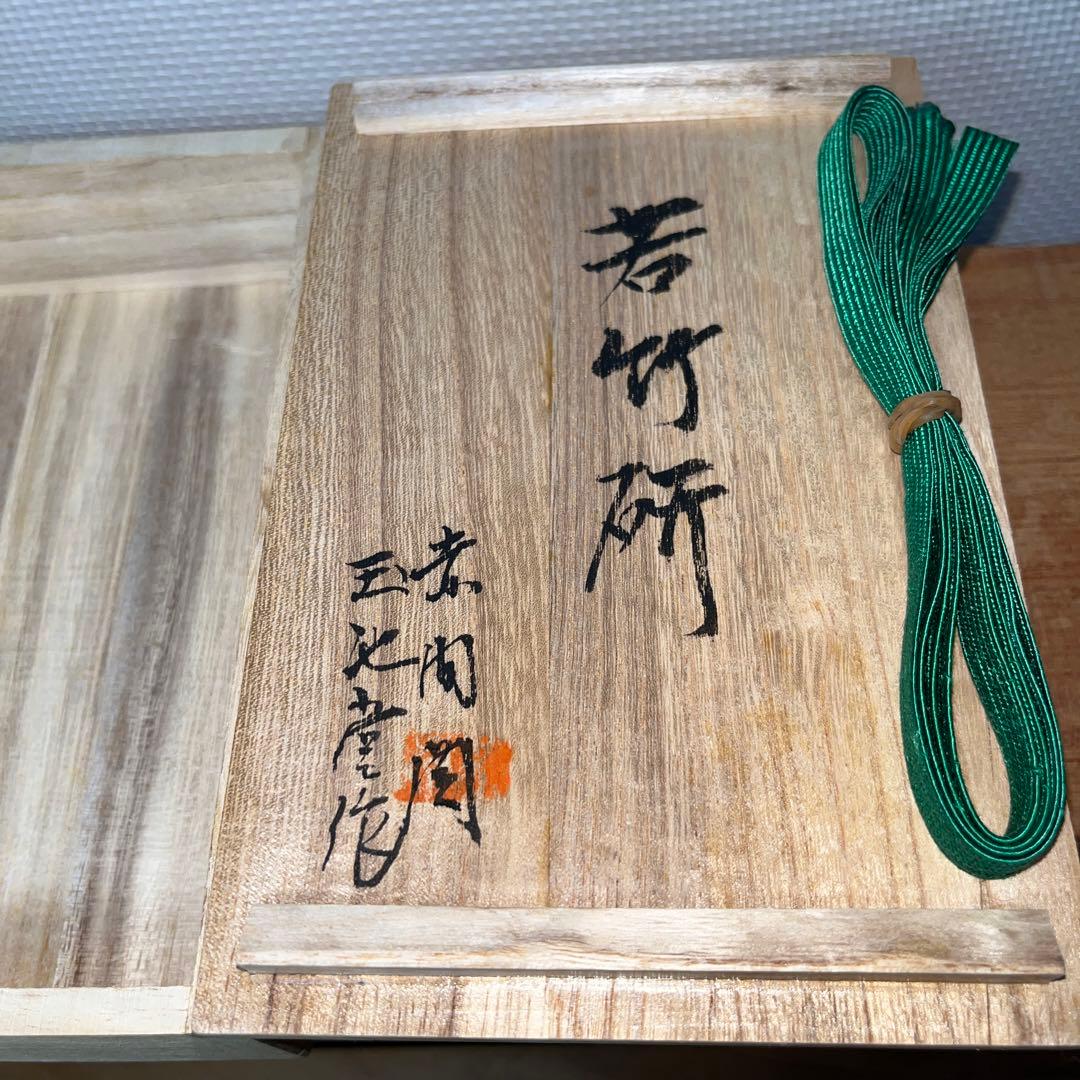 若竹硯
赤間関
玉池堂作